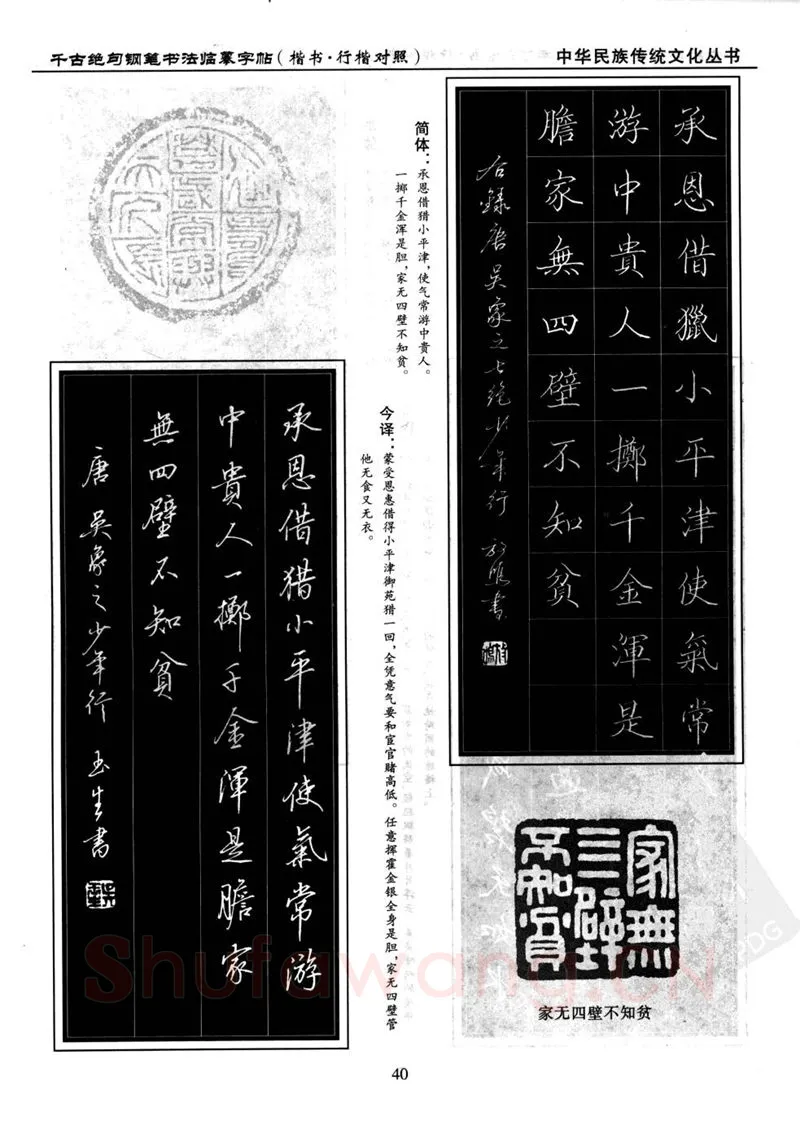 千古绝句钢笔书法临摹字帖(楷书·行楷对照)
中华民族传统文化丛书
承恩借獵小平津使氣常
游中貴人一擲千金渾是
膽家無四壁不知貧
右錄唐吳象之七絕少年行
书
简体：承恩借猎小平津，使气常游中贵人。
一掷千金浑是胆，家无四壁不知贫。
今译：蒙受恩惠借得小平津御苑猎一回，全凭意气要和宦官赌高低。任意挥霍金银全身是胆，家无四壁管
他无食又无衣。
承恩借猎小平津使氣常游
中貴人一擲千金渾是膽家
無四壁不知貧
唐吳象之少年行 玉生書
家無
四壁
不知貧
家无四壁不知贫
Shufawang.CN
40